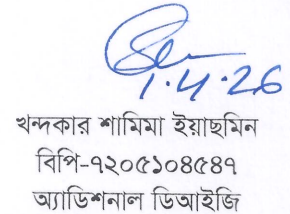 ১.৪.26
খন্দকার শামিমা ইয়াছমিন
বিপি-৭২০৫১০৪৫৪৭
অ্যাডিশনাল ডিআইজি